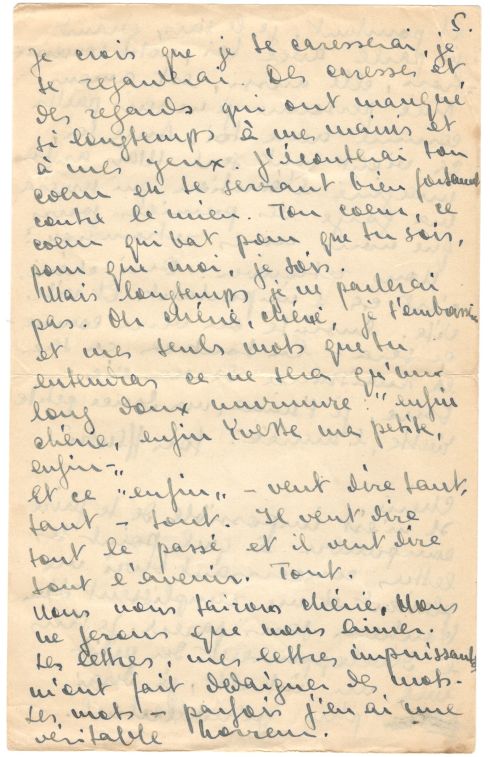 5.
Je crois que je te caresserai, je
te regarderai. Des caresses et
des regards qui ont manqué
si longtemps à mes mains et
à mes yeux. J'écouterai ton
coeur en te serrant bien fortement
contre le mien. Ton coeur, ce
coeur qui bat pour que tu sois,
pour que moi, je sois.
Mais longtemps je ne parlerai
pas. Oh chérie, chérie, je t'embrasserai
et mes seuls mots que tu
entendras ce ne sera qu'un
long doux murmure : "enfin
chérie, enfin Yvette ma petite,
enfin –"
Et ce "enfin" – veut dire tant,
tant – tout. Il veut dire
tout le passé et il veut dire
tout l'avenir. Tout.
Nous nous tairons chérie. Nous
ne ferons que nous aimer.
Les lettres, mes lettres impuissantes
m'ont fait dédaigner des mots.
Les mots – parfois j'en ai une
véritable horreur.